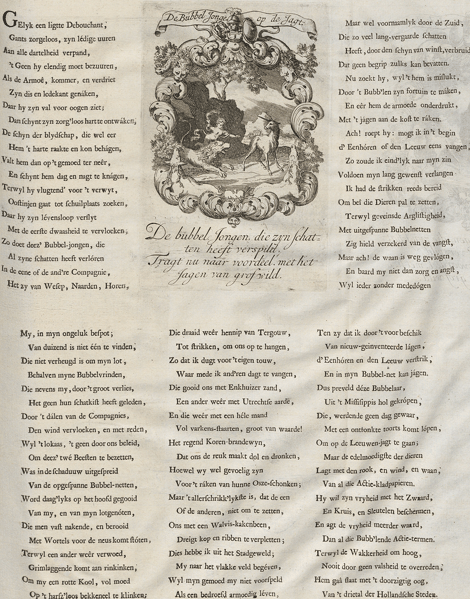 GElyk een ligtte Debouchant,
Gants zorgeloos, zyn lédige uuren
Aan alle dartelheid verpand,
't Geen hy elendig moet bezuuren,
Als de Armoê, kommer, en verdriet
Zyn dis en ledekant genáken,
Daar hy zyn val voor oogen ziet;
Dan schynt zyn zorg'loos hartte ontwáken;
De schyn der blydschap, die wel eer
Hem 't harte raakte en kon behágen,
Valt hem dan op 't gemoed ter neêr,
En schynt hem dag en nagt te knágen,
Terwyl hy vlugtend' voor 't verwyt,
Oostinjen gaat tot schuilplaats zoeken,
Daar hy zyn lévensloop verslyt
Met de eerste dwaasheid te vervloeken;
Zo doet deez' Bubbel-jongen, die
Al zyne schatten heeft verlóren
In de eene of de and're Compagnie,
Het zy van Weesp, Naarden, Horen,
De Bubbel Jonge op de Jagt.
De bubbel Jongen, die zyn schat-
ten heeft verspild,
Tragt nu naar voordeel, met het
Jagen van grof wild.
Maar wel voornamlyk door de Zuid,
Die zo veel lang-vergaarde schatten
Heeft, door den schyn van winst, verbruid
Dat geen begrip zulks kan bevatten.
Nu zoekt hy, wyl 't hem is mislukt,
Door 't Bubb'len zyn fortuin te máken,
En eêr hem de armoede onderdrukt,
Met 't jágen aan de kost te ráken.
Ach! roept hy: mog ik in 't begin
d' Eenhóren of den Leeuw eens vangen,
Zo zoude ik eind'lyk naar myn zin
Voldoen myn lang gewenst verlangen
Ik had de strikken reeds bereid
Om bel die Dieren pal te zetten,
Terwyl geveinsde Arglistigheid,
Met uitgespanne Bubbelnetten
Zig hield verzekerd van de vangst,
Maar ach! de waan is weg gevlógen,
En baard my niet dan zorg en angst,
Wyl ieder zonder mededógen
My, in myn ongeluk bespot;
Van duizend is niet één te vinden,
Die niet verheugd is om myn lot,
Behalven myne Bubbelvrinden,
Die nevens my, door 't groot verlies,
Het geen hun schatkist heeft geleden,
Door 't dálen van de Compagnies,
Den wind vervloeken, en met reden,
Wyl 't lokaas, 't geen door ons beleid,
Om deez' twé Beesten te bezetten,
Was in de schaduuw uitgespreid
Van de opgespanne Bubbel-netten,
Word daag'lyks op het hoofd gegooid
Van my, en van myn lotgenóten,
Die men vast nakende, en berooid
Met Wortels voor de neus komt stóten,
Terwyl een ander weêr verwoed,
Grimlaggende komt aan rinkinken,
Om my een rotte Kool, vol moed
Op 't harss'loos bekkeneel te klinken;
Die draaid weêr hennip van Tergouw,
Tot strikken, om ons op te hangen,
Zo dat ik dugt voor 't eigen touw,
Waar mede ik and'ren dagt te vangen,
Die gooid ons met Enkhuizer zand,
Een ander weêr met Utrechtse aarde,
En die weêr met een héle mand
Vol varkens-staarten, groot van waarde!
Het regend Koren-brandewyn,
Dat ons de reuk maakt dol en dronken,
Hoewel wy wel gevoelig zyn
Voor 't ráken van hunne Osze-schonken;
Maar 't allerschrikk'lykste is, dat de een
Of de anderen, niet om te zetten,
Ons met een Walvis-kakenbeen,
Dreigt kop en ribben te verpletten;
Dies hebbe ik uit het Stadgeweld;
My naar het vlakke veld begéven,
Wyl myn gemoed my niet voorspeld
Als een bedroefd armoedig léven,
Ten zy dat ik door 't voorbeschik
Van nieuw-geïnventeerde lágen,
d' Eenhóren en den Leeuw verstrik,
En in myn Bubbel-net kan jágen.
Dus preveld déze Bubbelaar,
Uit 't Missisippis hol gekrópen,
Die, werdende geen dag gewaar,
Met een ontfonkte toorts komt lópen,
Om op de Leeuwen-jagt te gaan;
Maar de edelmoedigste der dieren
Lagt met den rook, en wind, en waan,
Van al die Actie-kladpapieren.
Hy wil zyn vryheid met het Zwaard,
En Kruis, en Sleutelen beschermen,
En agt de vryheid meerder waard,
Dan al die Bubb'lende Actie-termen.
Terwyl de Wakkerheid om hoog,
Nooit door geen valsheid te overreden,
Hem gâ slaat met 't doorzigtig oog,
Van 't drietal der Hollandsche Steden.